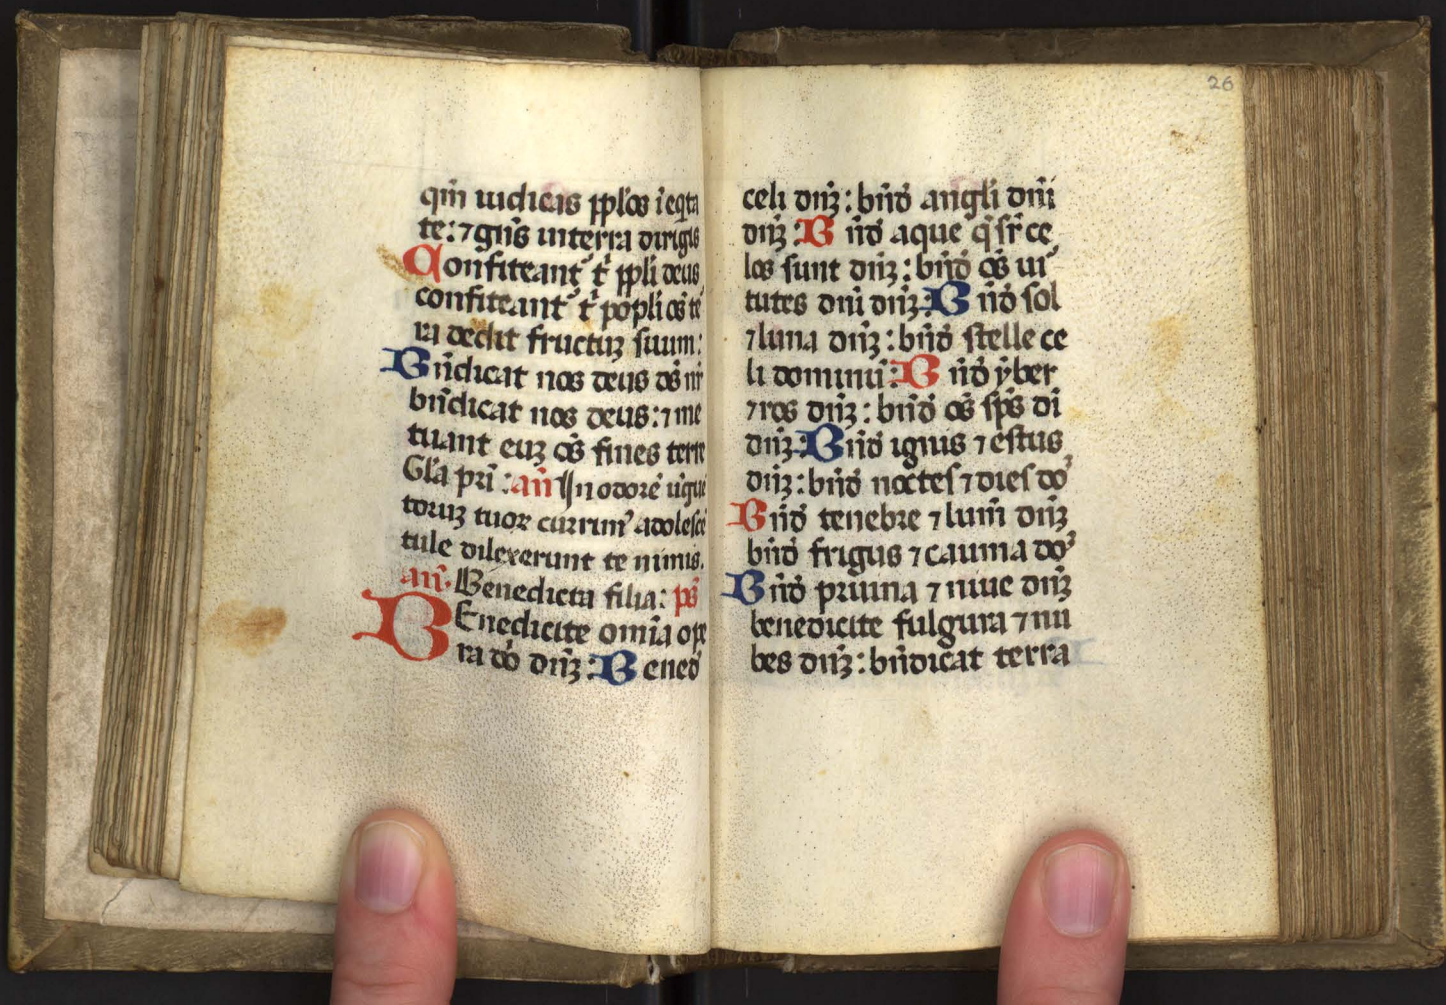 qm̄ iudicas ppl̄os ī eq̄ta
te: ⁊ gn̄s in terra dirigis
Confiteant᷑ t̄ ppl̄i deus
confiteant᷑ t̄ popl̄i oēs t̄
ra dedit fructuꝫ suum:
Bn̄dicat nos deus ds̄ nr̄
bn̄dicat nos deus: ⁊ me
tuant euꝫ os̄ fines terre
Gl̄a pri᷑: an̄ In odorē ūgue
toruꝫ tuoꝝ currim᷒ adolescē
tule dilexerunt te nimis.
an̄. Benedicta filia: ps̄
Benedicite om̄ia ope
ra do᷑ dn̄ꝫ: Bened̄
26
celi dn̄ꝫ: bn̄d̄ angl̄i dn̄i
dn̄ꝫ: Bn̄d̄ aque q̄ sr̄ ce
los sunt dn̄ꝫ: bn̄d̄ os̄ uir᷑
tutes dn̄i dn̄ꝫ: Bn̄d̄ sol
⁊ luna dn̄ꝫ: bn̄d̄ stelle ce
li dominū: Bn̄d̄ ẏber
⁊ ros dn̄ꝫ: bn̄d̄ os̄ sps̄ di᷑
dn̄ꝫ: Bn̄d̄ ignis ⁊ estus
dn̄ꝫ: bn̄d̄ noctes ⁊ dies do᷑
Bn̄d̄ tenebre ⁊ lum̄ dn̄ꝫ
bn̄d̄ frigus ⁊ cauma do᷑
Bn̄d̄ pruina ⁊ niue dn̄ꝫ
benedicite fulgura ⁊ nu
bes dn̄ꝫ: bn̄dicat terra